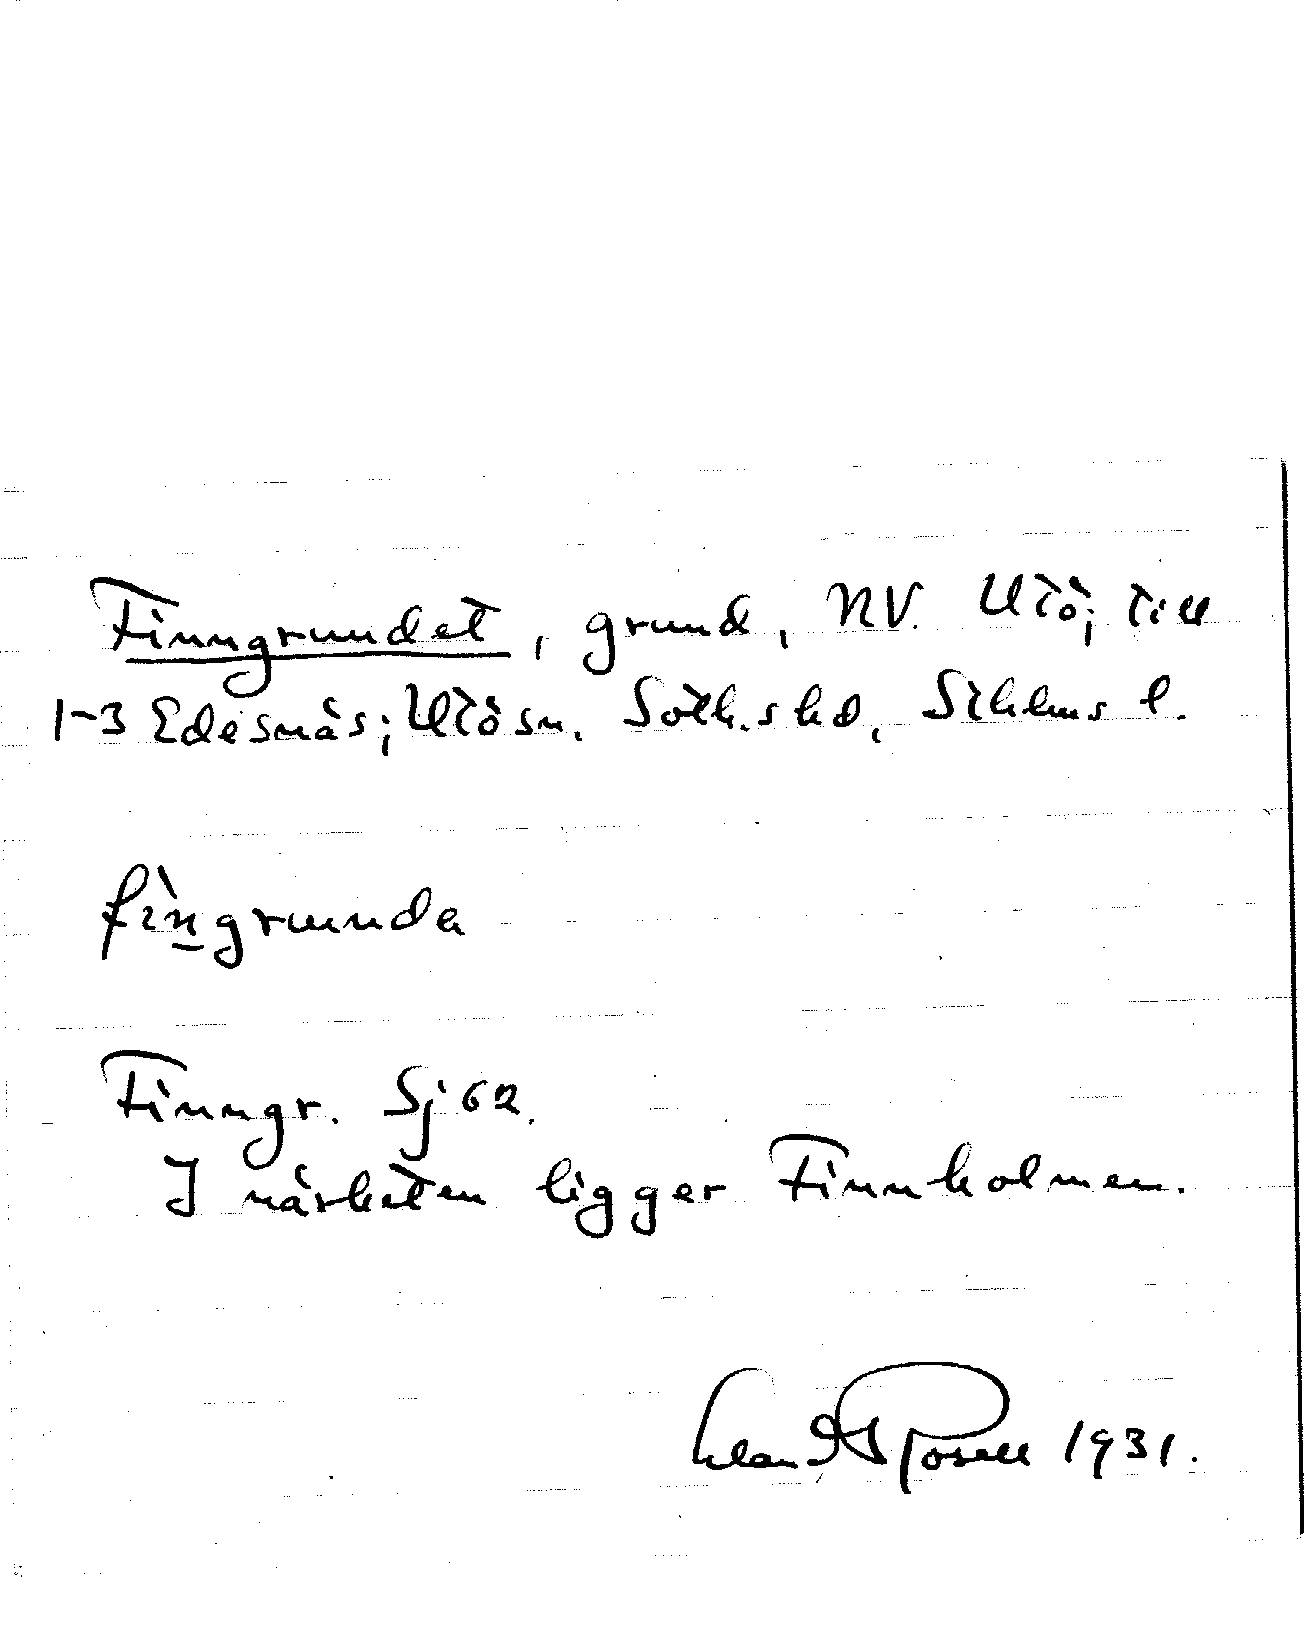 Finngrundet, grund, NV. Utö; till
1-3 Edesnäs; Utö sn. Soth. skd, Sthlms l.
fìngrunda
Finngr. Sj 62.
I närheten ligger Finnholmen.
1931.